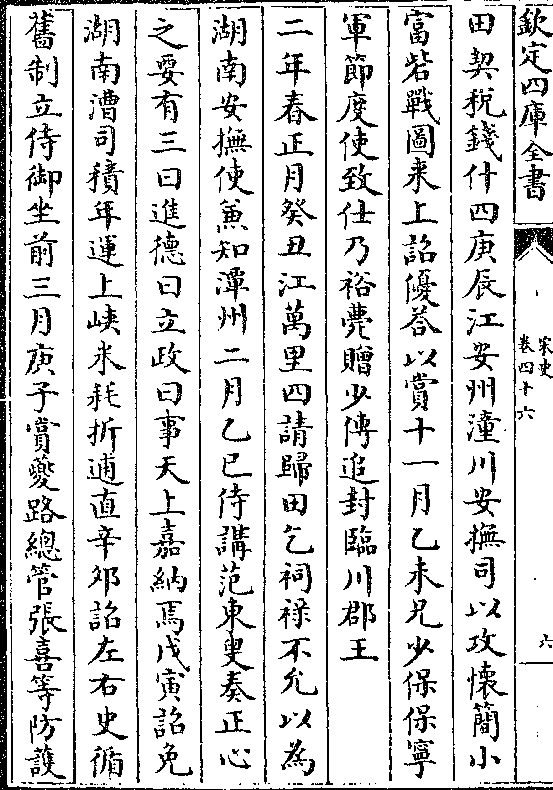 欽定四庫全書
宋史
卷四十六
六
田契稅錢什四庚辰江安州潼川安撫司以攻懷簡小
富砦戰圖來上詔優荅以賞十一月乙未兄少保保寧
軍節度使致仕乃裕薨贈少傅追封臨川郡王
二年春正月癸丑江萬里四請歸田乞祠祿不允以為
湖南安撫使兼知潭州二月乙巳侍講范東叟奏正心
之要有三曰進德曰立政曰事天上嘉納焉戊寅詔免
湖南漕司積年運上峽米耗折逋直辛夘詔左右史循
舊制立侍御坐前三月庚子賞夔路總管張喜等防護